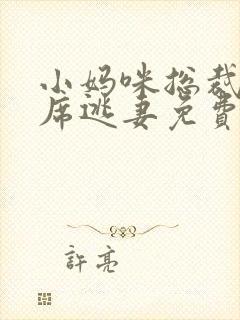 小妈咪总裁
席逃妻免費
許亮